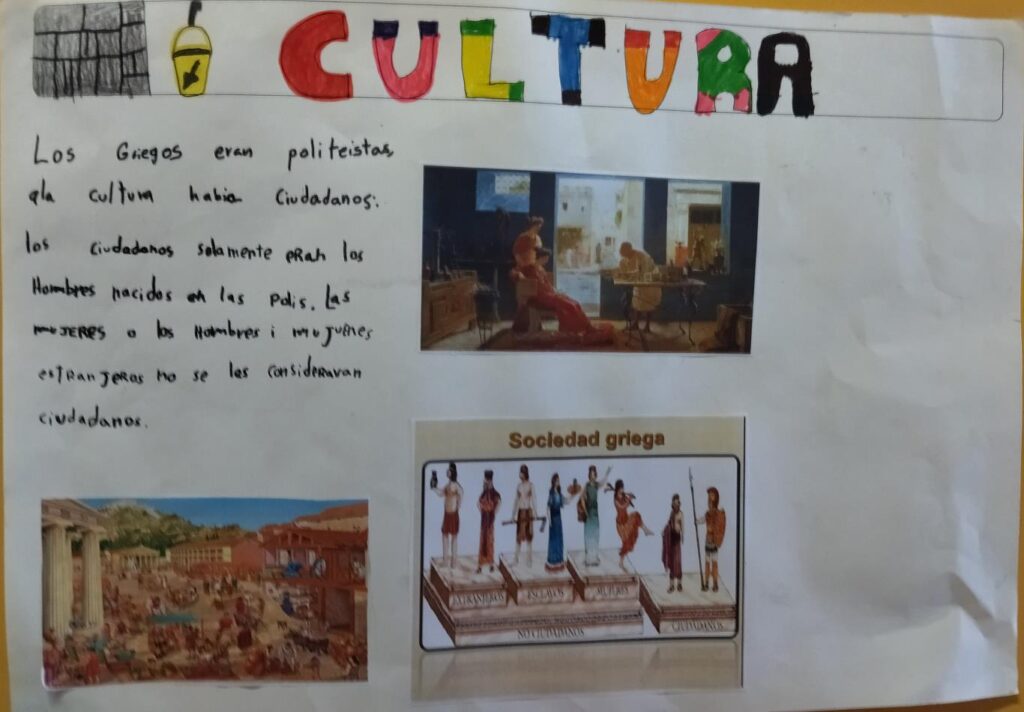 CULTURA
Los Griegos eran politeistas,
a la cultura habia Ciudadanos:
los ciudadanos solamente eran los
Hombres nacidos en las Polis. Las
mujeres o los Hombres i mujeres
estranjeras no se les consideravan
ciudadanos.
Sociedad griega
EXTRANJEROS ESCLAVOS MUJERES
NO CIUDADANOS
CIUDADANOS